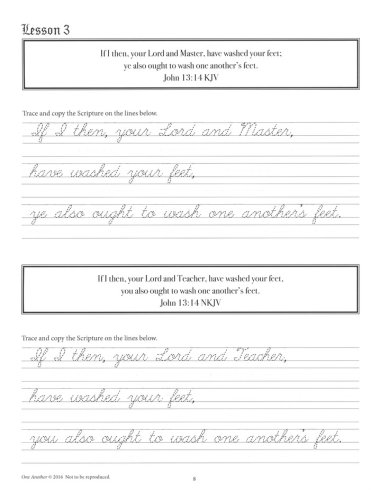 Lesson 3
If I then, your Lord and Master, have washed your feet;
ye also ought to wash one another's feet.
John 13:14 KJV
Trace and copy the Scripture on the lines below.
If I then, your Lord and Master,
have washed your feet,
ye also ought to wash one another's feet.
If I then, your Lord and Teacher, have washed your feet,
you also ought to wash one another's feet.
John 13:14 NKJV
Trace and copy the Scripture on the lines below.
If I then, your Lord and Teacher,
have washed your feet,
you also ought to wash one another's feet.
One Another © 2016 Not to be reproduced.
8